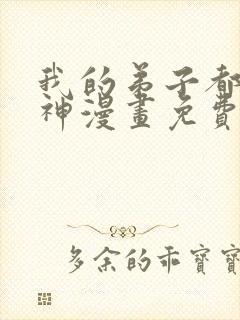 我的弟子都
神漫畫免費
多余的乖寶寶